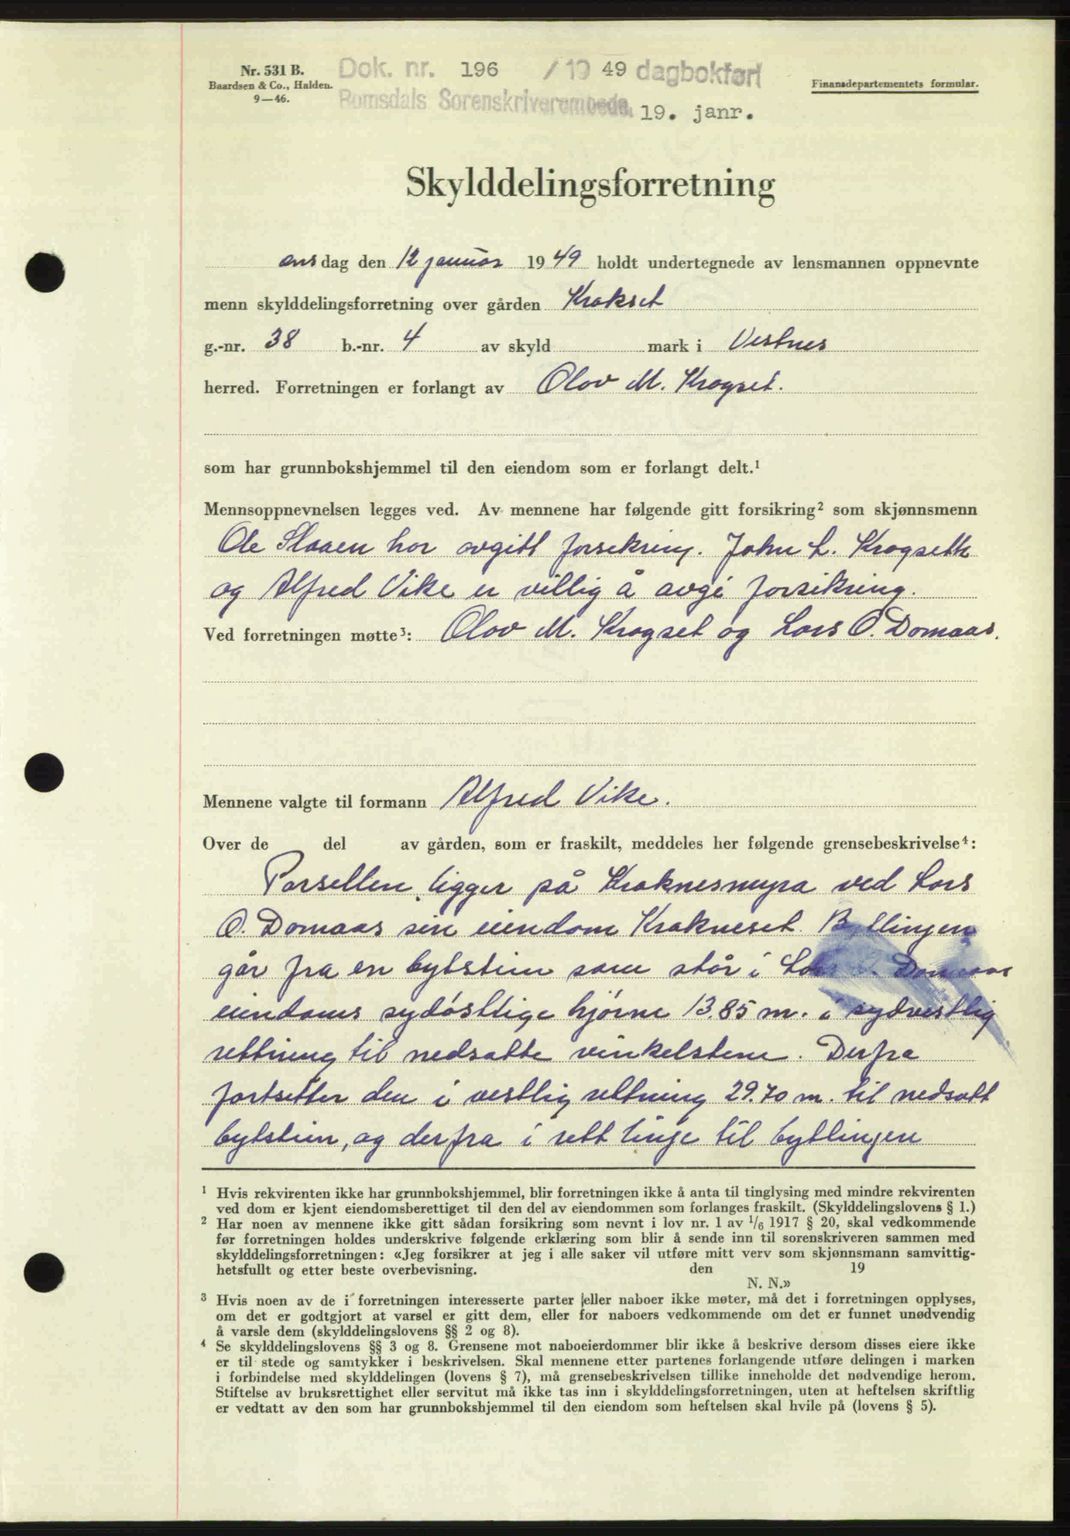 Nr. 531 B.
Baardsen & Co., Halden.
9—46.
Dok. nr. 196 / 19 49 dagbokført
Romsdals Sorenskriverembede. 19. janr.
Finansdepartementets formular.
Skylddelingsforretning
onsdag den 12 januar 1949 holdt undertegnede av lensmannen oppnevnte
menn skylddelingsforretning over gården Krokset
g.-nr. 38 b.-nr. 4 av skyld mark i Vestnes
herred. Forretningen er forlangt av Olov M. Krogset.
som har grunnbokshjemmel til den eiendom som er forlangt delt.¹
Mennsoppnevnelsen legges ved. Av mennene har følgende gitt forsikring² som skjønnsmenn
Ole Slaaen har avgitt forsikring. John L. Krogseth
og Alfred Vike er villig å avgi forsikring.
Ved forretningen møtte³: Olov M. Krogset og Lars O. Domaas.
Mennene valgte til formann Alfred Vike.
Over de del av gården, som er fraskilt, meddeles her følgende grensebeskrivelse⁴:
Parsellen ligger på Kroknesmyra ved Lars
O. Domaas sin eiendom Krokneset. Bytlingen
går fra en bytstein som står i Lars O. Domaas
eiendoms sydøstlige hjørne 13.85 m. i sydvestlig
rettning til nedsatte vinkelstene. Derfra
fortsetter den i vestlig rettning 29.70 m. til nedsatt
bytstein, og derfra i rett linje til bytlingen
¹ Hvis rekvirenten ikke har grunnbokshjemmel, blir forretningen ikke å anta til tinglysing med mindre rekvirenten
ved dom er kjent eiendomsberettiget til den del av eiendommen som forlanges fraskilt. (Skylddelingslovens § 1.)
² Har noen av mennene ikke gitt sådan forsikring som nevnt i lov nr. 1 av 1/6 1917 § 20, skal vedkommende
før forretningen holdes underskrive følgende erklæring som blir å sende inn til sorenskriveren sammen med
skylddelingsforretningen: «Jeg forsikrer at jeg i alle saker vil utføre mitt verv som skjønnsmann samvittig-
hetsfullt og etter beste overbevisning. den 19
N. N.»
³ Hvis noen av de i forretningen interesserte parter eller naboer ikke møter, må det i forretningen opplyses,
om det er godtgjort at varsel er gitt dem, eller for naboers vedkommende om det er funnet unødvendig
å varsle dem (skylddelingslovens §§ 2 og 8).
⁴ Se skylddelingslovens §§ 3 og 8. Grensene mot naboeierdommer blir ikke å beskrive dersom disses eiere ikke
er til stede og samtykker i beskrivelsen. Skal mennene etter partenes forlangende utføre delingen i marken
i forbindelse med skylddelingen (lovens § 7), må grensebeskrivelsen tillike inneholde det nødvendige herom.
Stiftelse av bruksrettighet eller servitut må ikke tas inn i skylddelingsforretningen, uten at heftelsen skriftlig
er vedtatt av den som har grunnbokshjemmel til den eiendom som heftelsen skal hvile på (lovens § 5).